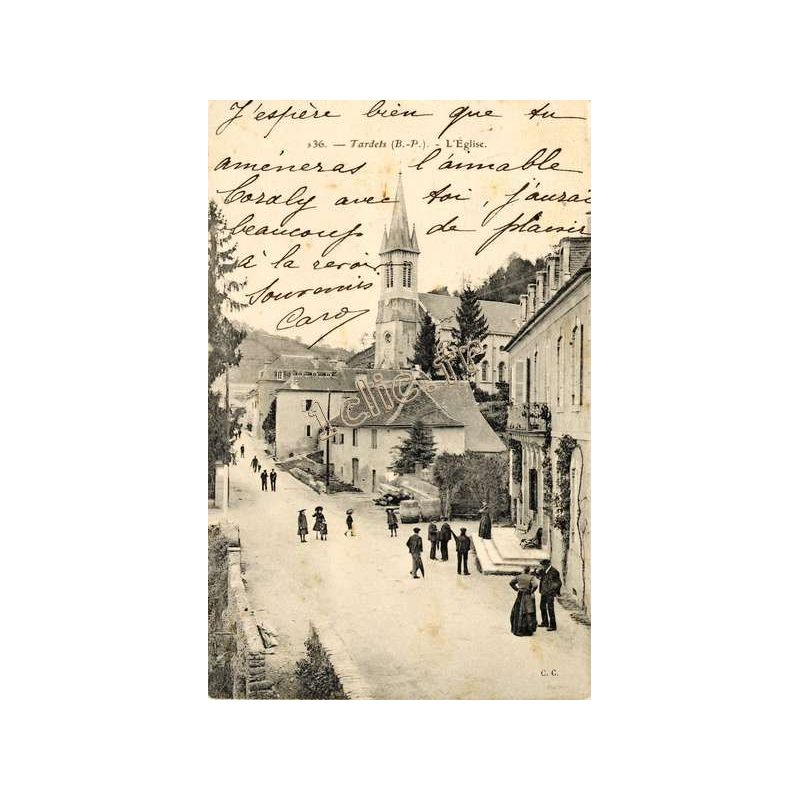 J'espère bien que tu
336. — Tardets (B.-P.). - L'Église.
amèneras l'aimable
Coraly avec toi, j'aurai
beaucoup de plaisir
à la revoir
Souvenirs
Caro
1clic.ws
C. C.